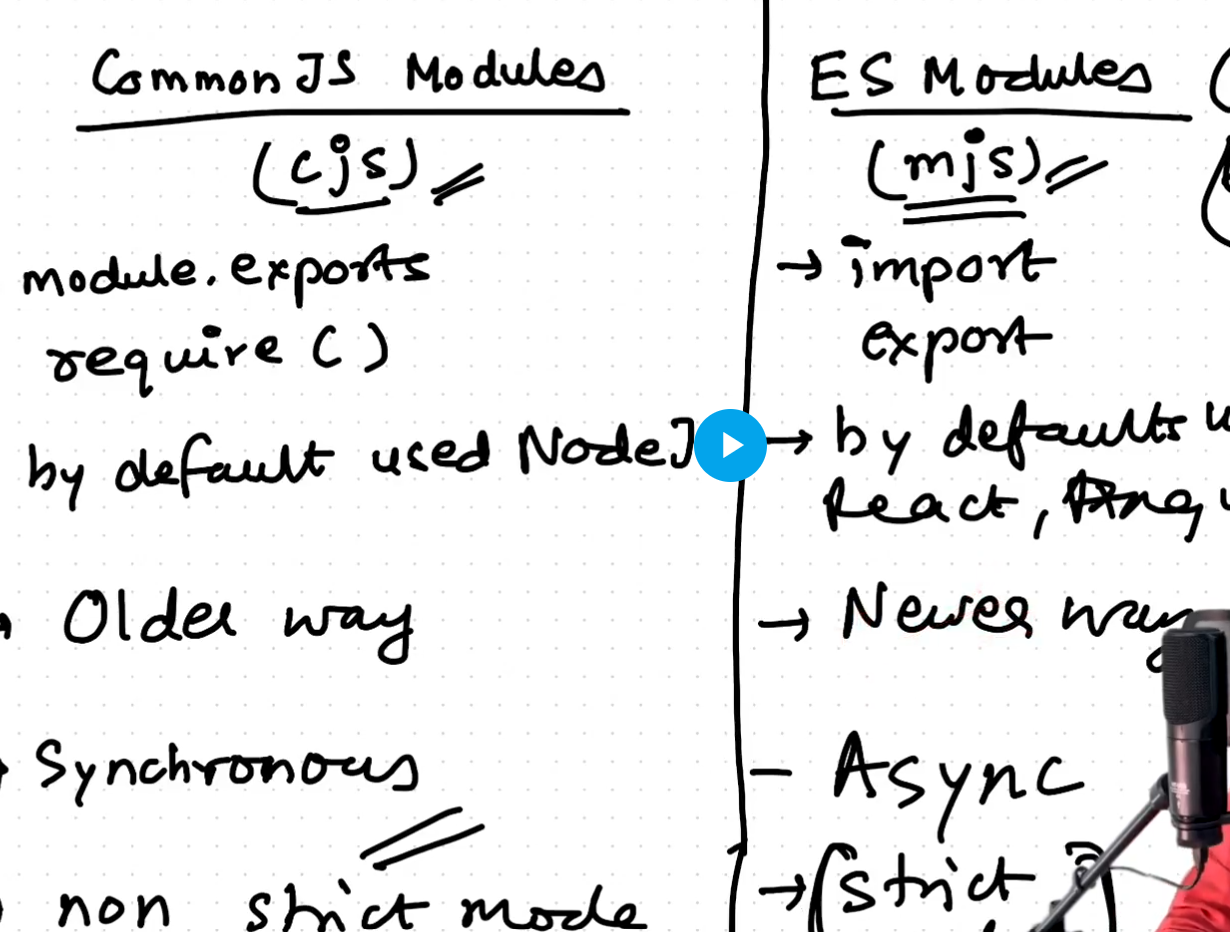 CommonJS Modules
(cjs)
module.exports
require()
by default used NodeJ
Older way
Synchronous
non strict mode
ES Modules
(mjs)
→ import
export
→ by defaults
React,
→ Newer way
- Async
→ (strict